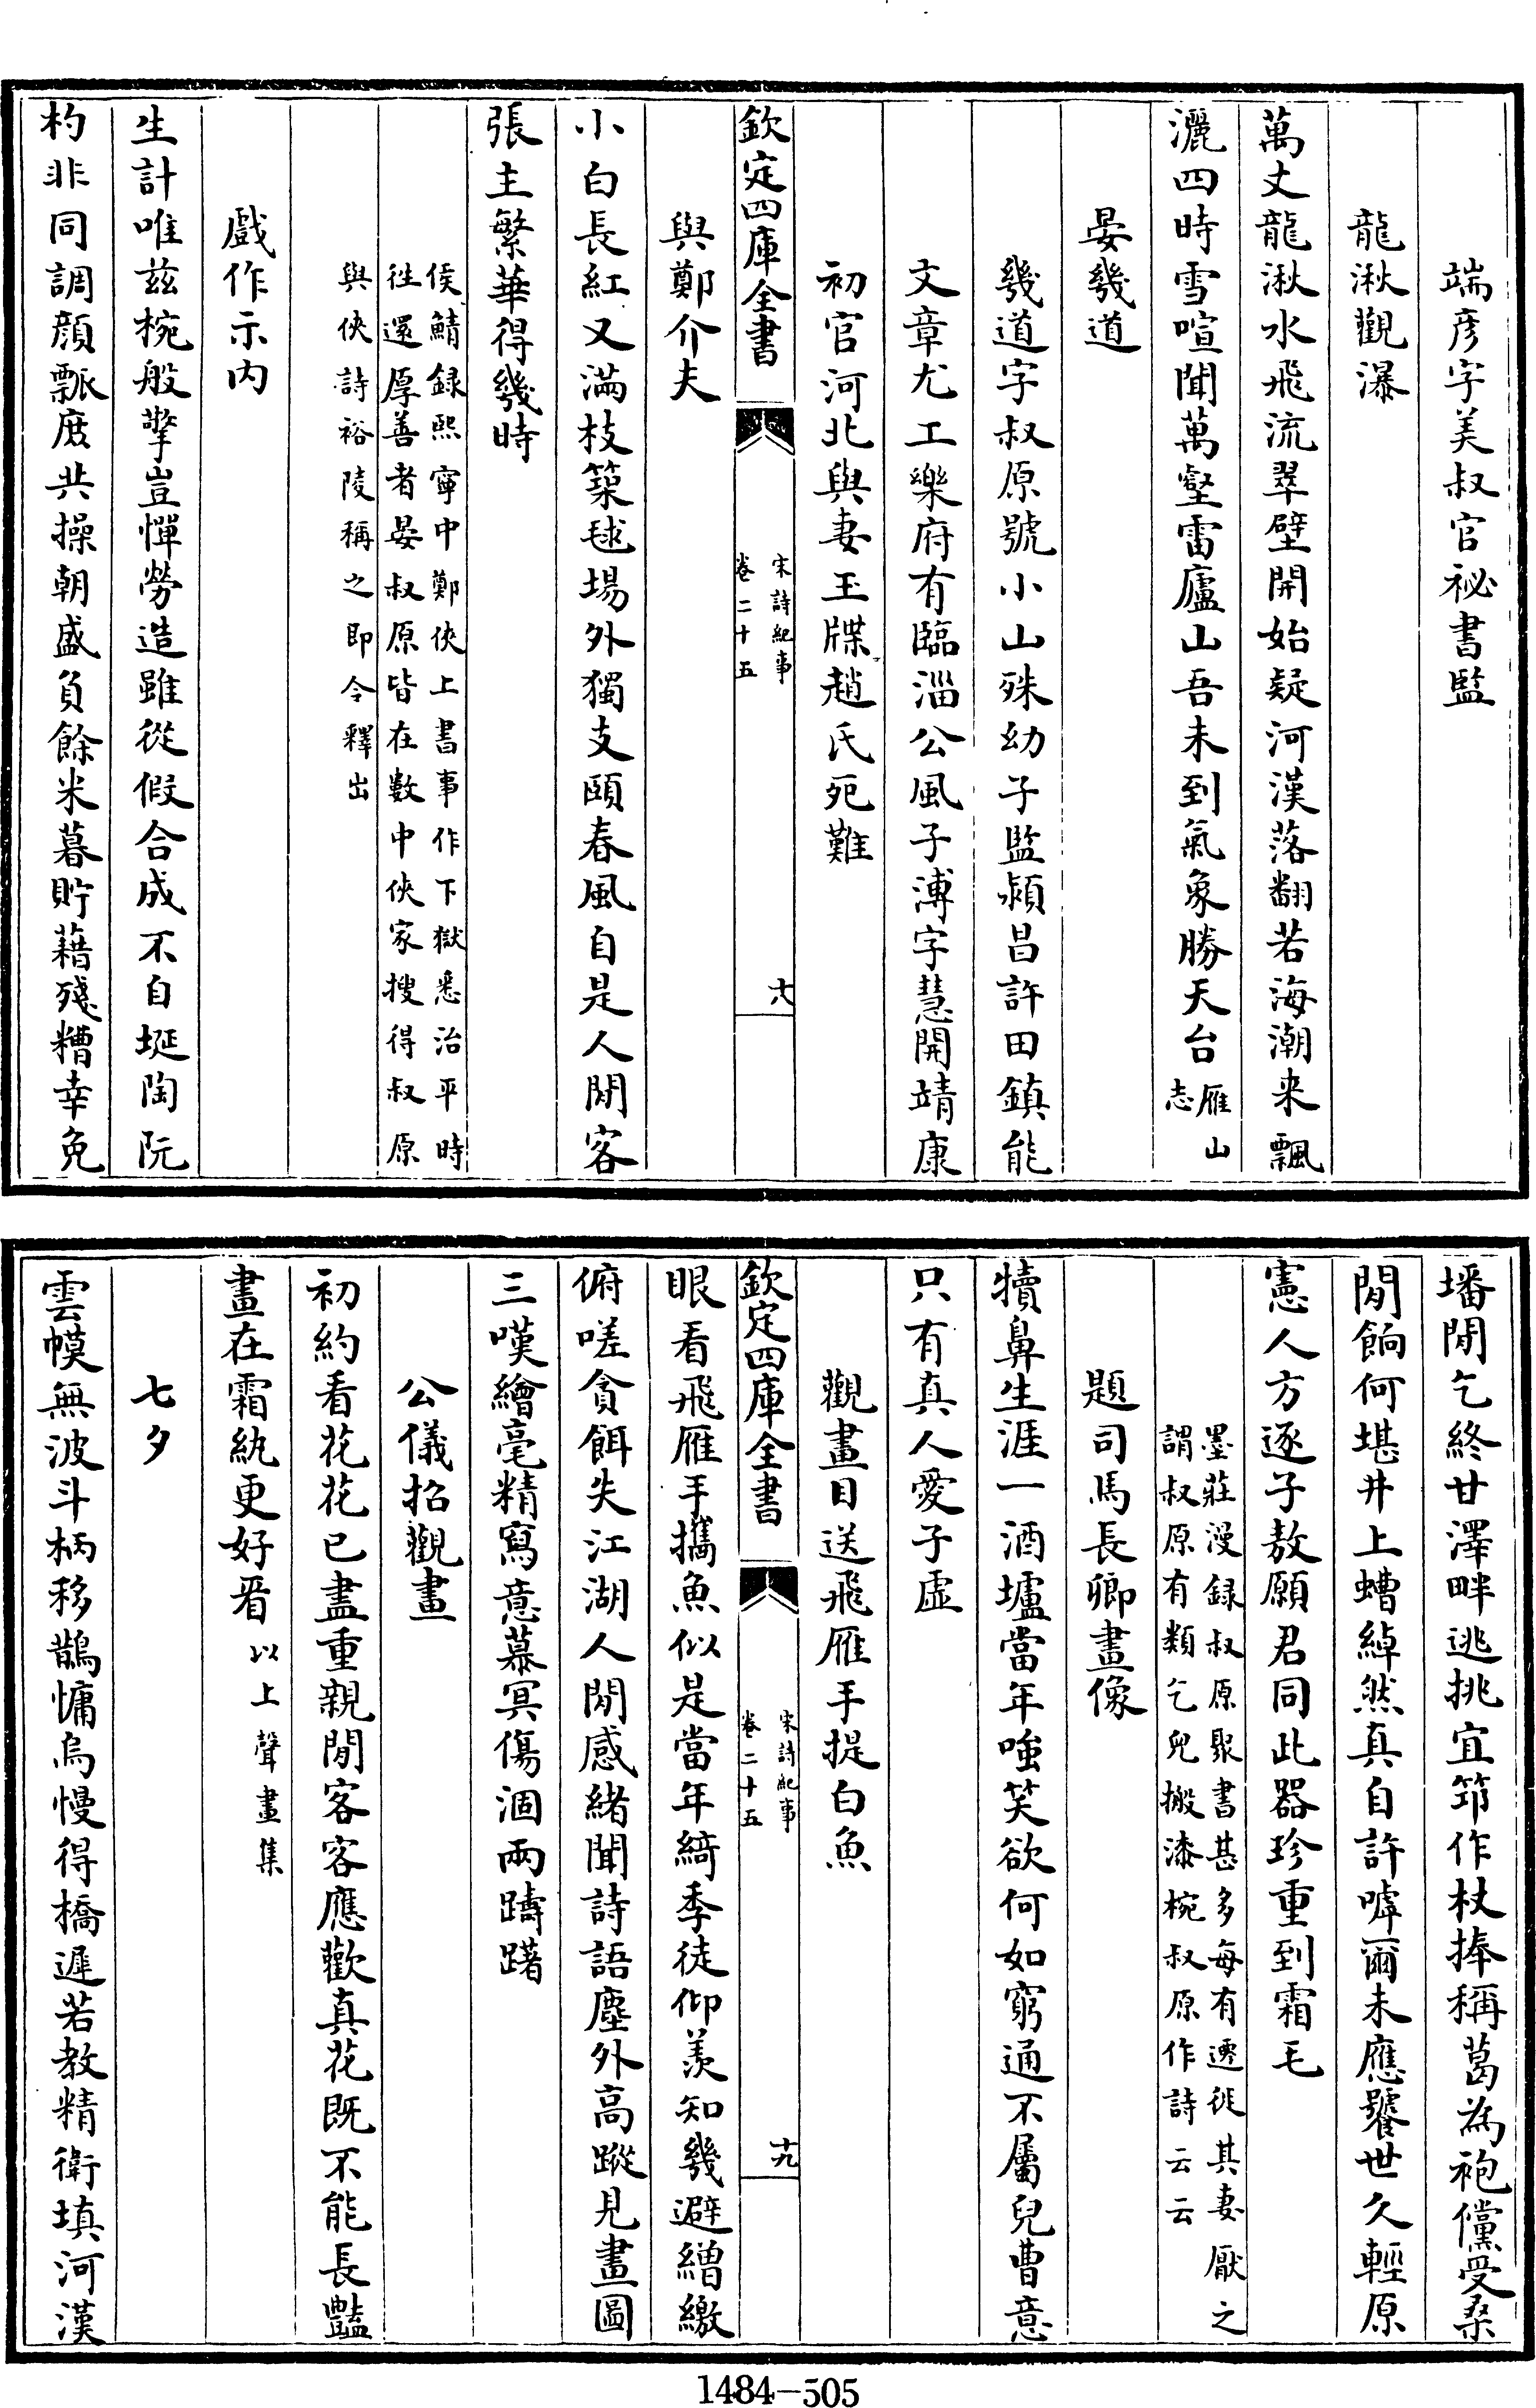 端彦字美叔官祕書監
龍湫觀瀑
萬丈龍湫水飛流翠壁開始疑河漢落翻若海潮來飄
灑四時雪喧聞萬壑雷廬山吾未到氣象勝天台雁山
志
晏幾道
幾道字叔原號小山殊幼子監潁昌許田鎮能
文章尤工樂府有臨淄公風子溥字慧開靖康
初官河北與妻玉牒趙氏死難
欽定四庫全書
宋詩紀事
卷二十五
十八
與鄭介夫
小白長紅又滿枝築毬場外獨支頤春風自是人間客
張主繁華得幾時
侯鯖錄熙寧中鄭俠上書事作下獄悉治平時
往還厚善者晏叔原皆在數中俠家搜得叔原
與俠詩裕陵稱之即令釋出
戲作示内
生計唯兹椀般擎豈憚勞造雖從假合成不自埏陶阮
杓非同調顔瓢庶共操朝盛負餘米暮貯藉殘糟幸免
墦間乞終甘澤畔逃挑宜筇作杖捧稱葛為袍儻受桑
間餉何堪井上螬綽然真自許嘑爾未應饕世久輕原
憲人方逐子敖願君同此器珍重到霜毛
墨莊漫録叔原聚書甚多每有遷徙其妻厭之
謂叔原有類乞兒搬漆椀叔原作詩云云
題司馬長卿畫像
犢鼻生涯一酒壚當年嗤笑欲何如窮通不屬兒曹意
只有真人愛子虛
觀畫目送飛雁手提白魚
欽定四庫全書
宋詩紀事
卷二十五
十九
眼看飛雁手攜魚似是當年綺季徒仰羨知幾避繒繳
俯嗟貪餌失江湖人間感緒聞詩語塵外高蹤見畫圖
三嘆繪毫精寫意慕冥傷涸兩躊躇
公儀招觀畫
初約看花花已盡重親閒客客應歡真花既不能長豔
畫在霜紈更好看以上聲畫集
七夕
雲幙無波斗柄移鵲慵烏慢得橋遲若教精衛填河漢
1484-505